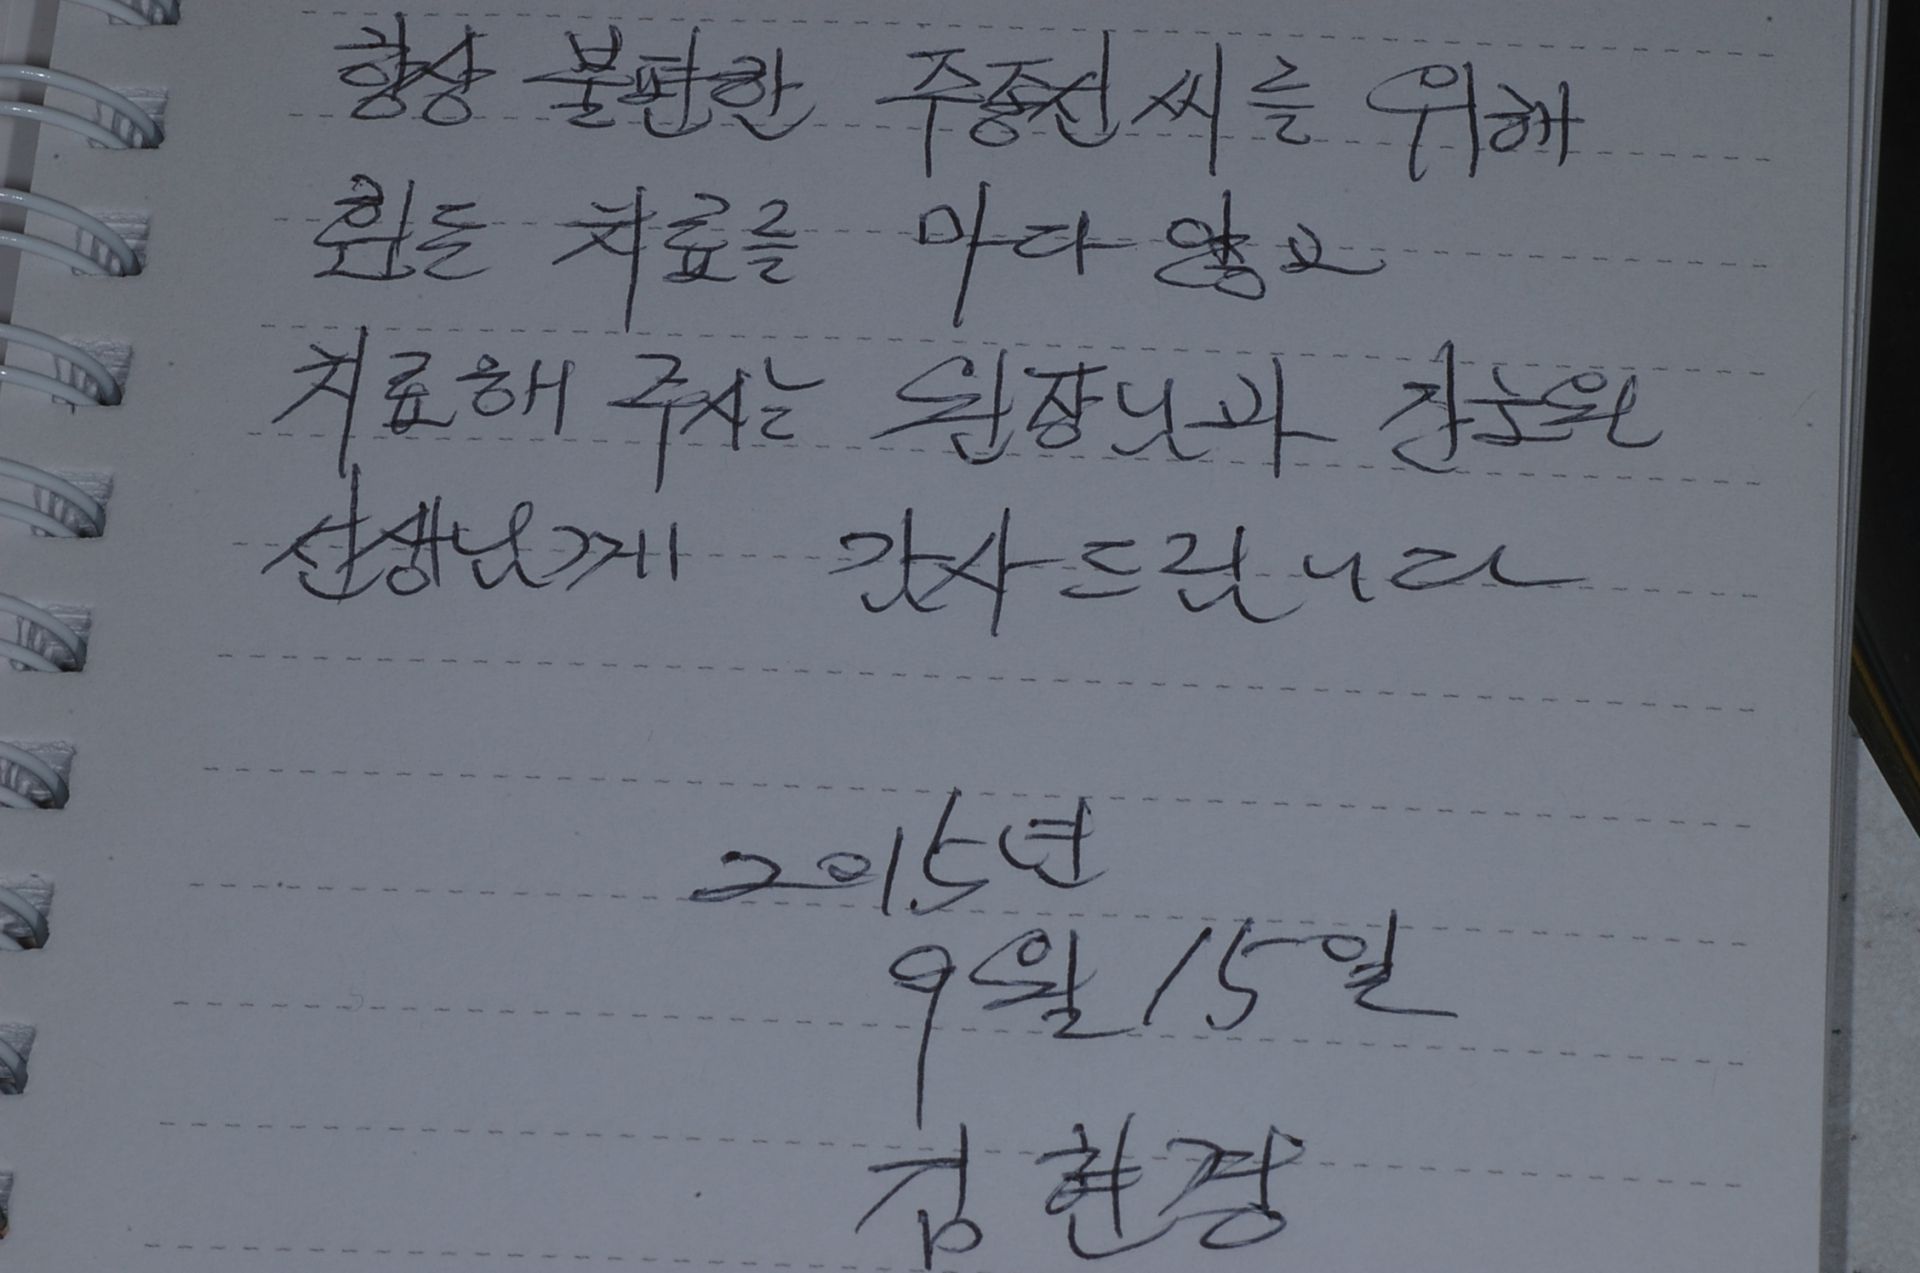 항상 불편한 주종선 씨를 위해
힘든 치료를 마다 않고
치료해 주시는 원장님과 간호원
선생님게 감사드립니다
2015년
9월 15일
김현경